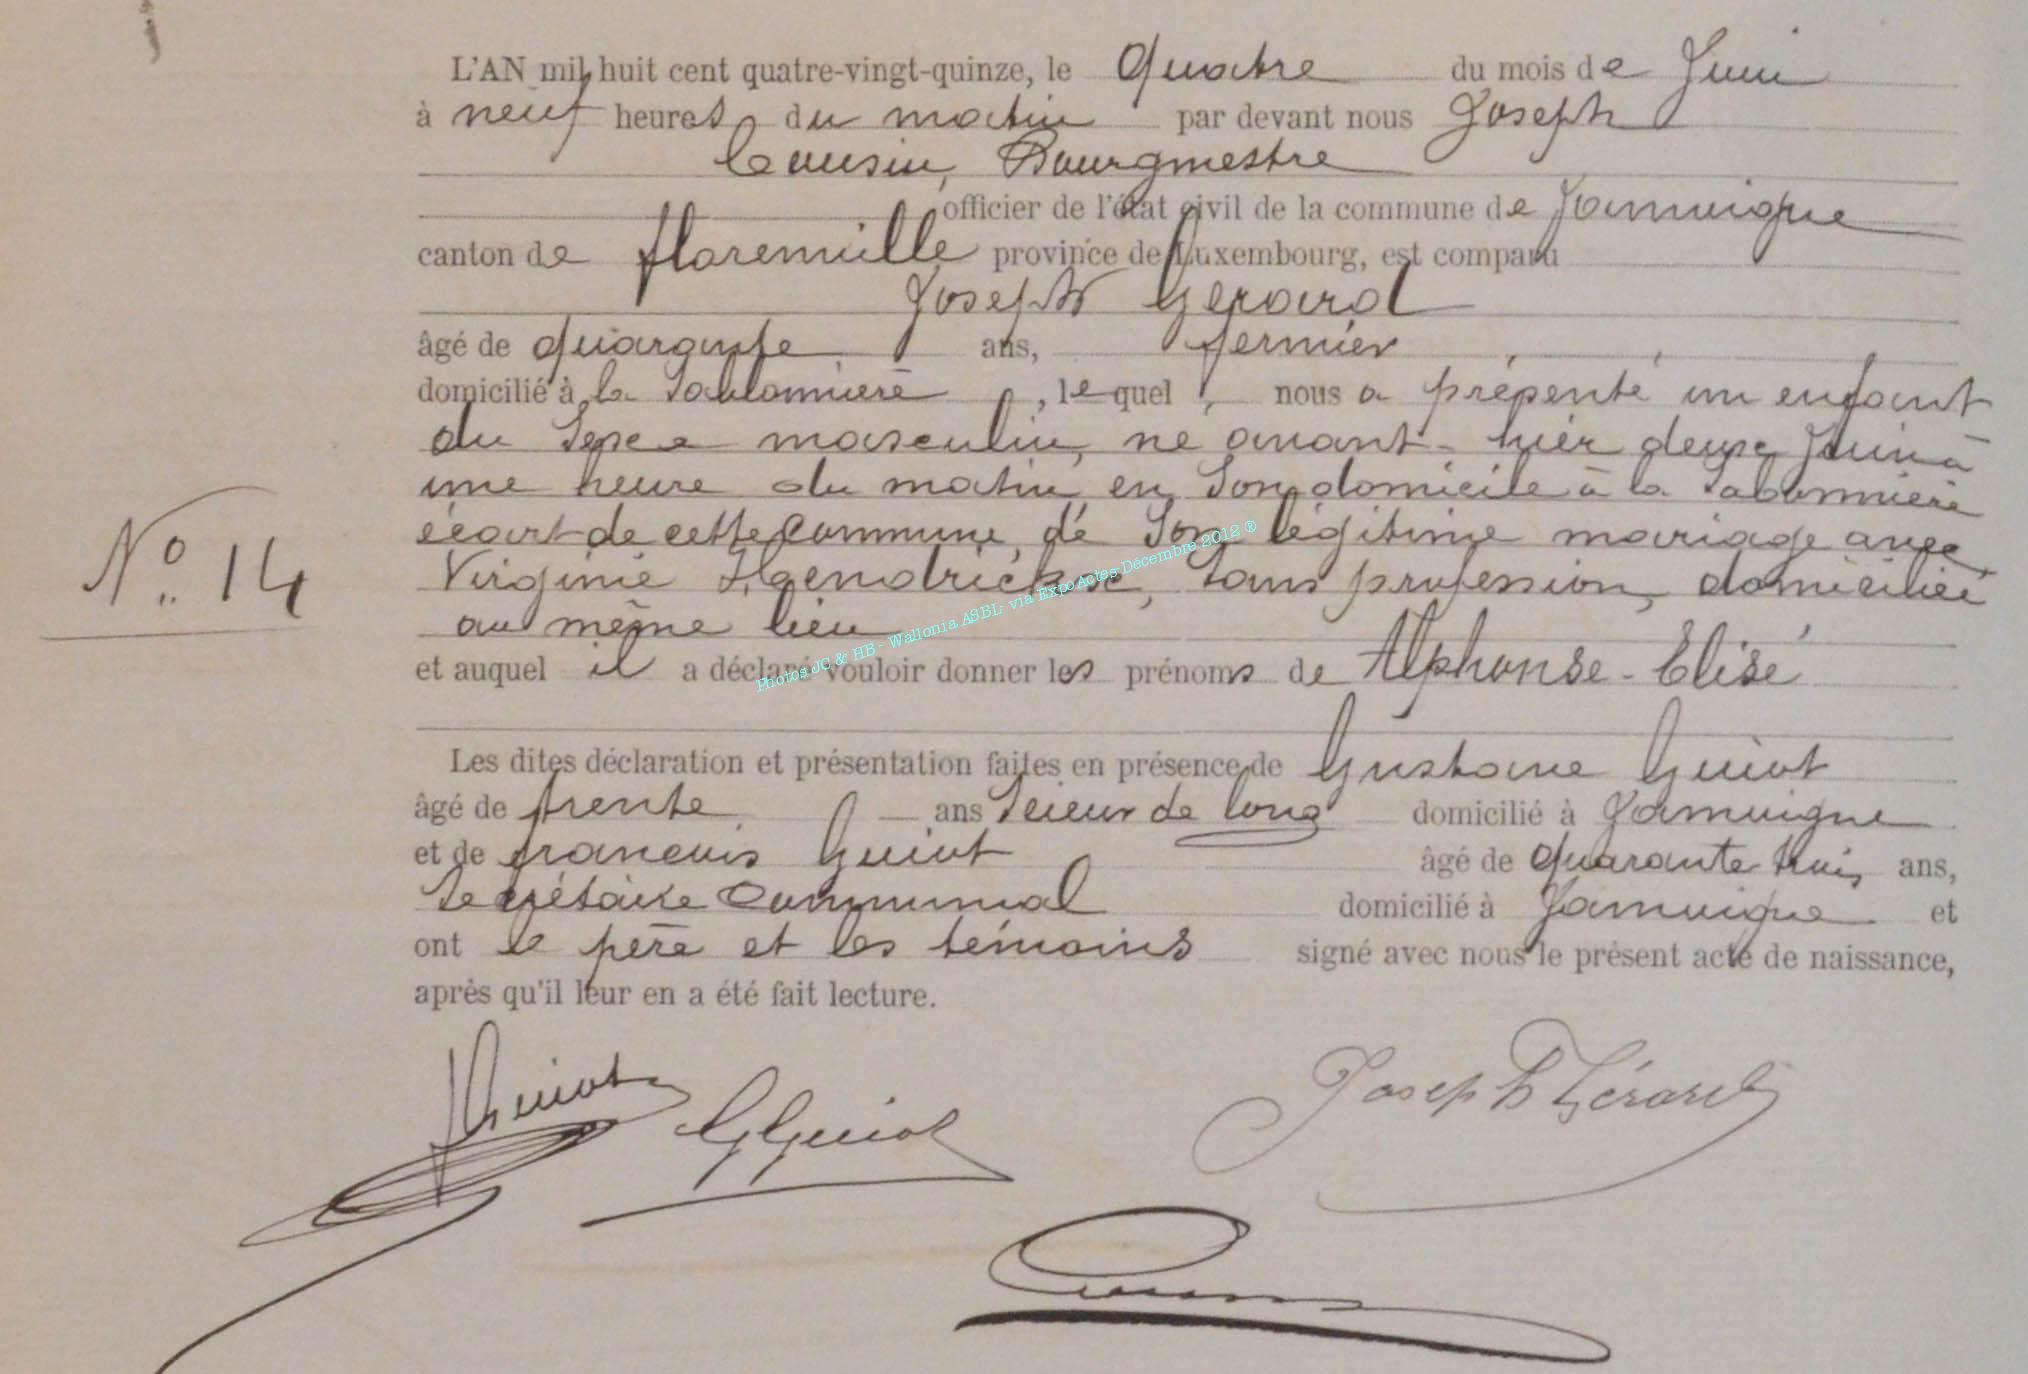 L'AN mil huit cent quatre-vingt-quinze, le Quatre du mois de Juin
à neuf heures du matin par devant nous Joseph
Cousin, Bourgmestre
officier de l'état civil de la commune de Jamoigne
canton de Florenville province de Luxembourg, est comparu
Joseph Gerard
âgé de quarante ans, fermier
domicilié à la Sablonnière, lequel, nous a présenté un enfant
du Sexe masculin, né avant-hier deux Juin à
une heure du matin en Son domicile à la Sablonnière
écart de cette commune, de Son légitime mariage avec
Virginie Haendrickx, Sans profession, domiciliée
au même lieu
et auquel il a déclaré vouloir donner les prénoms de Alphonse-Elisé
Les dites déclaration et présentation faites en présence de Gustave Guiot
âgé de trente ans Scieur de long domicilié à Jamoigne
et de francois Guiot âgé de quarante trois ans,
Secrétaire Communal domicilié à Jamoigne et
ont le père et les témoins signé avec nous le présent acte de naissance,
après qu'il leur en a été fait lecture.
N° 14
Guiot
G Guiot
Joseph Gérard
Cousin
Photos JC & HB - Wallonia ASBL via ExpoActes-Décembre 2012 ®